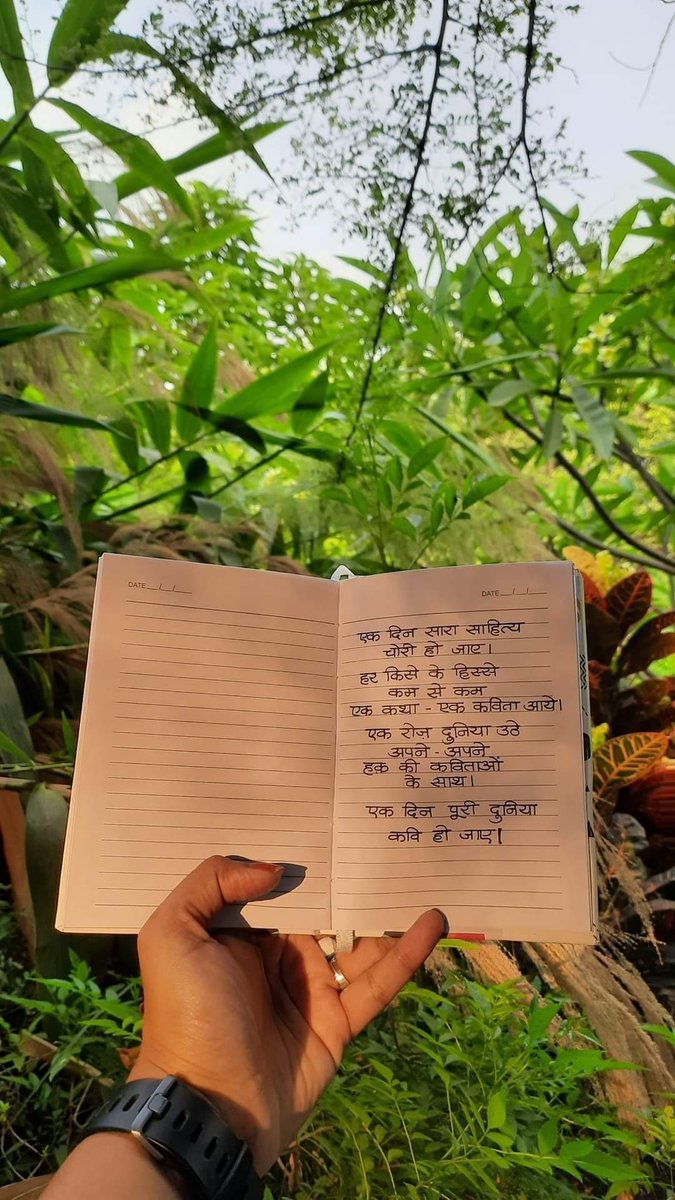 DATE__/__/__
DATE__/__/__
एक दिन सारा साहित्य
चोरी हो जाए।
हर किसे के हिस्से
कम से कम
एक कथा - एक कविता आये।
एक रोज़ दुनिया उठे
अपने - अपने
हक़ की कविताओं
के साथ।
एक दिन पूरी दुनिया
कवि हो जाए।